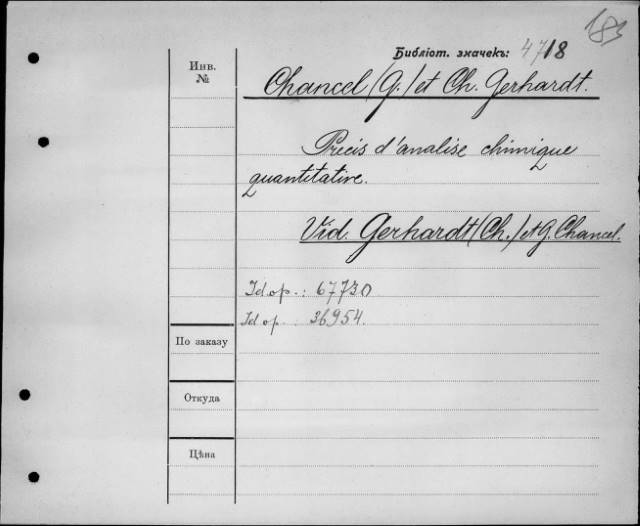 183
Библіот. значекъ: 4718
Инв. №
Chancel (G.) et Ch. Gerhardt.
Précis d'analise chimique
quantitative.
Vid. Gerhardt (Ch.) et G. Chancel.
Id op.: 67730
Id op.: 36954.
По заказу
Откуда
Цѣна